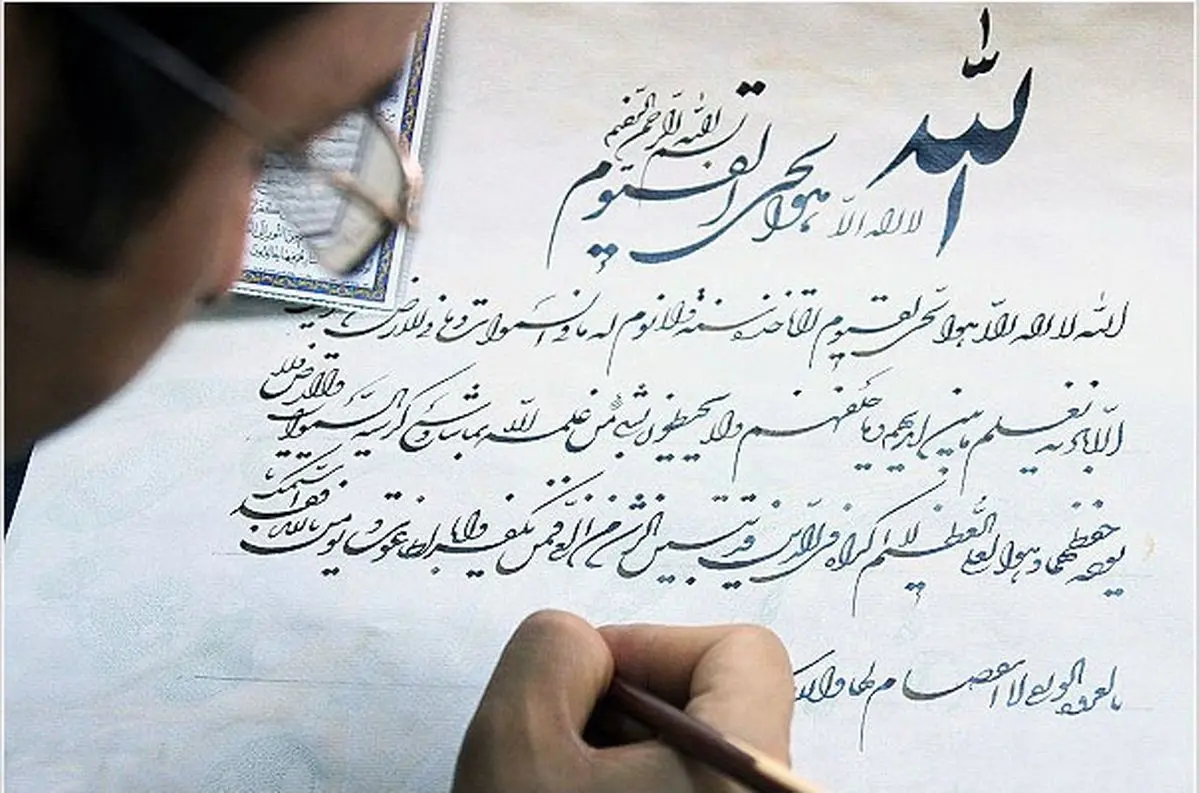 بسم الله الرحمن الرحیم
الله لا اله الا هو الحی القیوم
الله لا اله الا هو الحی القیوم لا تاخذه سنة ولا نوم له ما فی السموات و ما فی الارض
الا باذنه یعلم ما بین ایدیهم و ما خلفهم ولا یحیطون بشیء من علمه الا بما شاء وسع کرسیه السموات والارض ولا
یوده حفظهما و هو العلی العظیم لا اکراه فی الدین قد تبین الرشد من الغی فمن یکفر بالطاغوت و یومن بالله فقد استمسک
بالعروة الوثقی لا انفصام لها